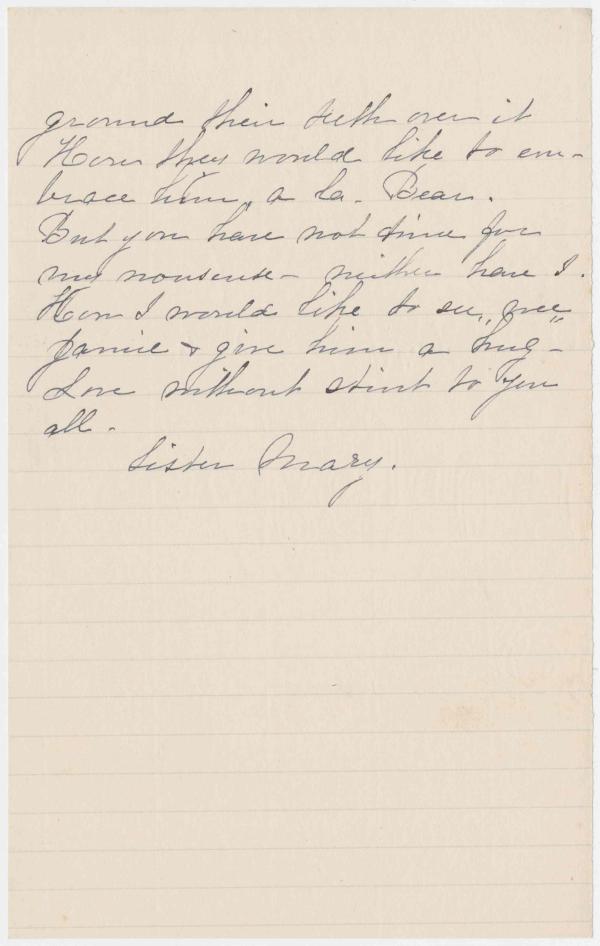 ground their teeth over it
How they would like to em-
brace him, a la. Bear.
But you have not time for
my nonsense - neither have I.
How I would like to see "wee
Jamie" & give him a hug -
Love without stint to you
all -
Sister Mary.